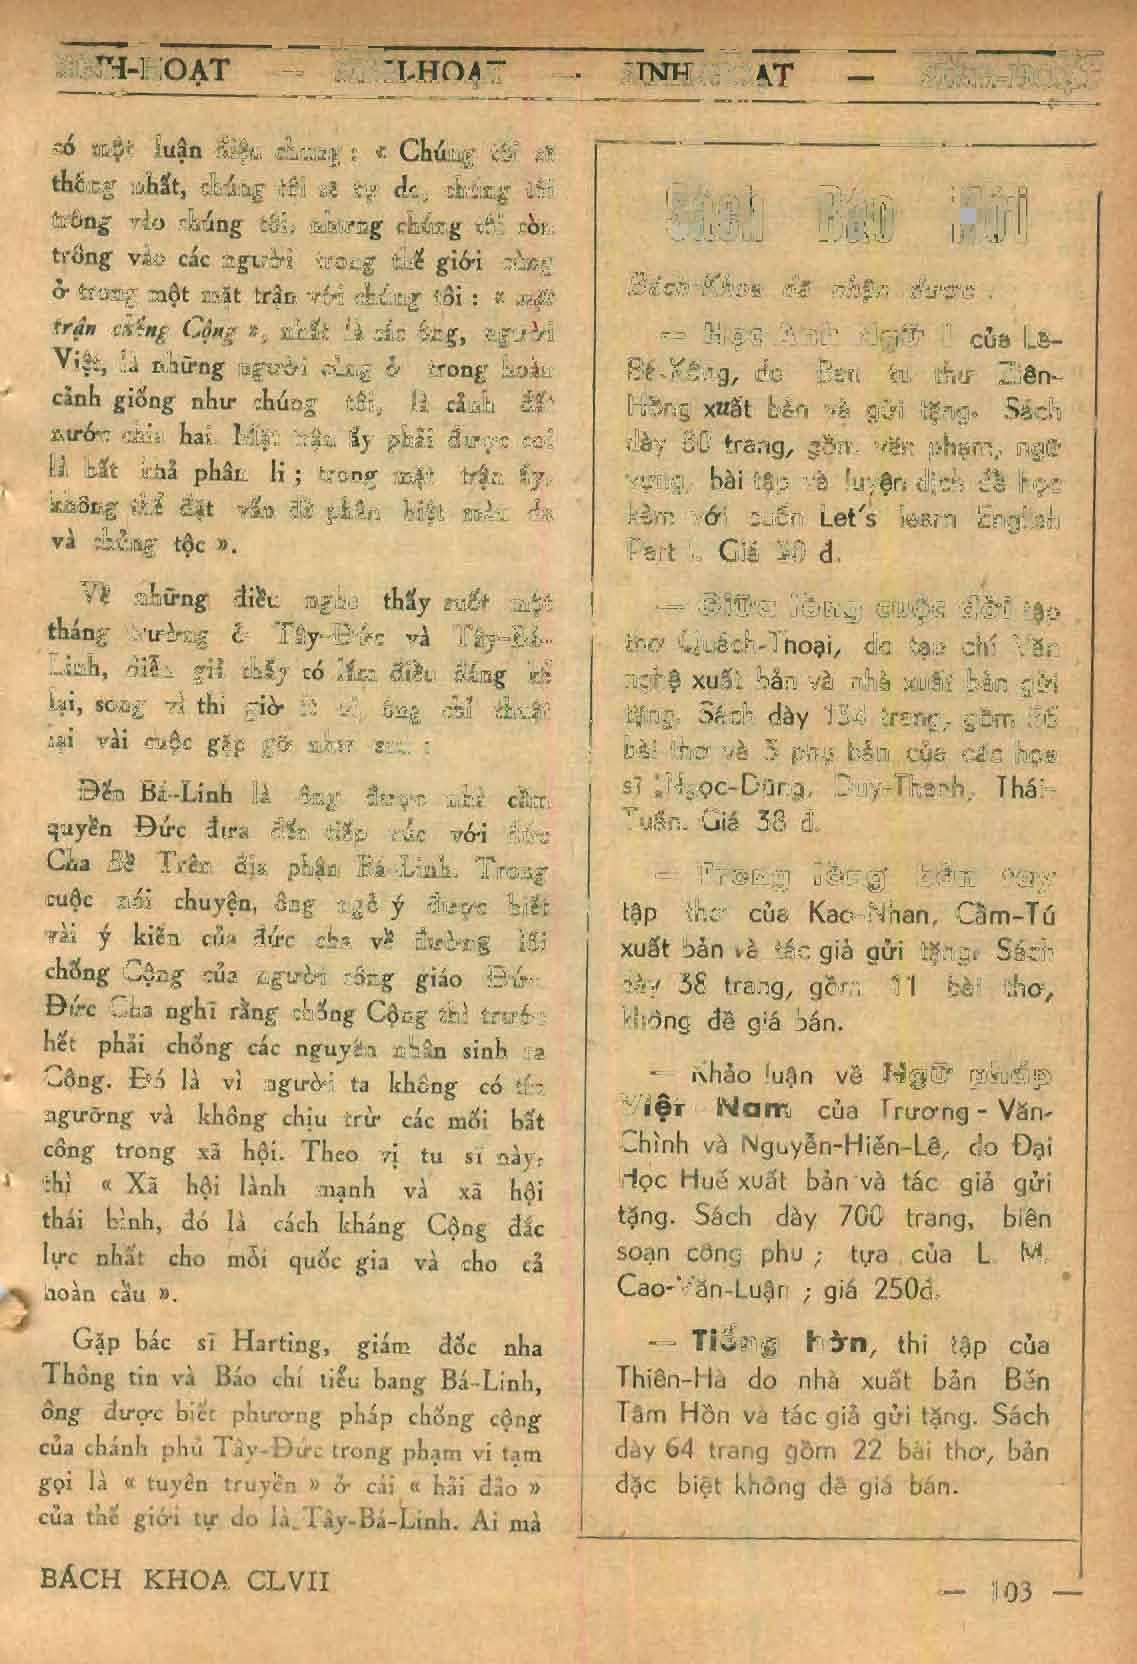 SINH-HOẠT — SINH-HOẠT — SINH-HOẠT — SINH-HOẠT
có một luận điệu chung : « Chúng tôi sẽ
thống nhất, chúng tôi sẽ tự do, chúng tôi
trông vào chúng tôi, nhưng chúng tôi còn
trông vào các người trong thế giới cùng
ở trong một mặt trận với chúng tôi : « mặt
trận chống Cộng », nhất là các ông, người
Việt, là những người cùng ở trong hoàn
cảnh giống như chúng tôi, là cảnh đất
nước chia hai. Mặt trận ấy phải được coi
là bất khả phân li ; trong mặt trận ấy,
không thể đặt vấn đề phân biệt màu da
và chủng tộc ».
Về những điều nghe thấy suốt một
tháng trường ở Tây-Đức và Tây-Bá-
Linh, diễn giả thấy có lắm điều đáng kể
lại, song vì thi giờ ít ỏi, ông chỉ thuật
lại vài cuộc gặp gỡ như sau :
Đến Bá-Linh là ông được nhà cầm
quyền Đức đưa đến tiếp xúc với đức
Cha Bề Trên địa phận Bá-Linh. Trong
cuộc nói chuyện, ông ngỏ ý được biết
vài ý kiến của đức cha về đường lối
chống Cộng của người công giáo Đức.
Đức Cha nghĩ rằng chống Cộng thì trước
hết phải chống các nguyên nhân sinh ra
Cộng. Đó là vì người ta không có tín
ngưỡng và không chịu trừ các mối bất
công trong xã hội. Theo vị tu sĩ này,
thì « Xã hội lành mạnh và xã hội
thái bình, đó là cách kháng Cộng đắc
lực nhất cho mỗi quốc gia và cho cả
hoàn cầu ».
Gặp bác sĩ Harting, giám đốc nha
Thông tin và Báo chí tiểu bang Bá-Linh,
ông được biết phương pháp chống cộng
của chánh phủ Tây-Đức trong phạm vi tạm
gọi là « tuyên truyền » ở cái « hải đảo »
của thế giới tự do là Tây-Bá-Linh. Ai mà
Sách Báo Mới
Bách-Khoa đã nhận được :
— Học Anh Ngữ I của Lê-
Bá-Kông, do Ban tu thư Ziên-
Hồng xuất bản và gửi tặng. Sách
dày 80 trang, gồm văn phạm, ngữ
vựng, bài tập và luyện dịch để học
kèm với cuốn Let's learn English
Part I. Giá 30 đ.
— Giữa lòng cuộc đời tập
thơ Quách-Thoại, do tạp chí Văn
nghệ xuất bản và nhà xuất bản gửi
tặng. Sách dày 134 trang, gồm 56
bài thơ và 3 phụ bản của các họa
sĩ : Ngọc-Dũng, Duy-Thanh, Thái-
Tuấn. Giá 38 đ.
— Trong lòng bàn tay
tập thơ của Kao-Nhan, Cầm-Tú
xuất bản và tác giả gửi tặng. Sách
dày 38 trang, gồm 11 bài thơ,
không đề giá bán.
— Khảo luận về Ngữ pháp
Việt Nam của Trương - Văn-
Chình và Nguyễn-Hiến-Lê, do Đại
Học Huế xuất bản và tác giả gửi
tặng. Sách dày 700 trang, biên
soạn công phu ; tựa của L. M.
Cao-Văn-Luận ; giá 250đ.
— Tiếng hờn, thi tập của
Thiên-Hà do nhà xuất bản Bến
Tâm Hồn và tác giả gửi tặng. Sách
dày 64 trang gồm 22 bài thơ, bản
đặc biệt không đề giá bán.
BÁCH KHOA CLVII
— 103 —